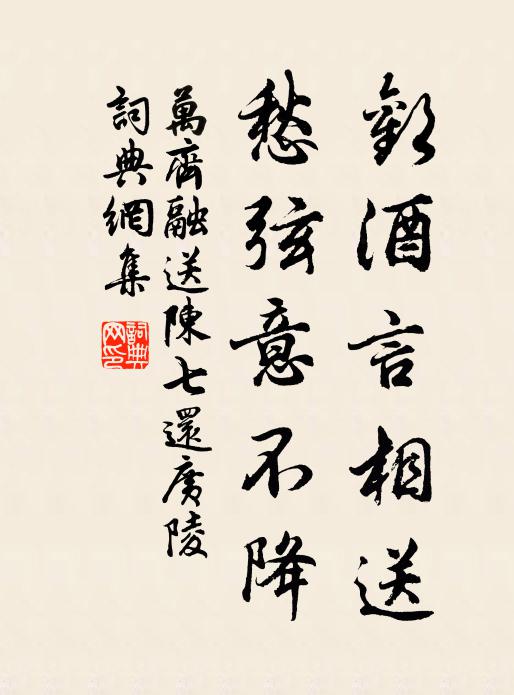 歡酒言相送
愁弦意不降
萬齊融送陳七還廣陵
詞典網集
詞典网印